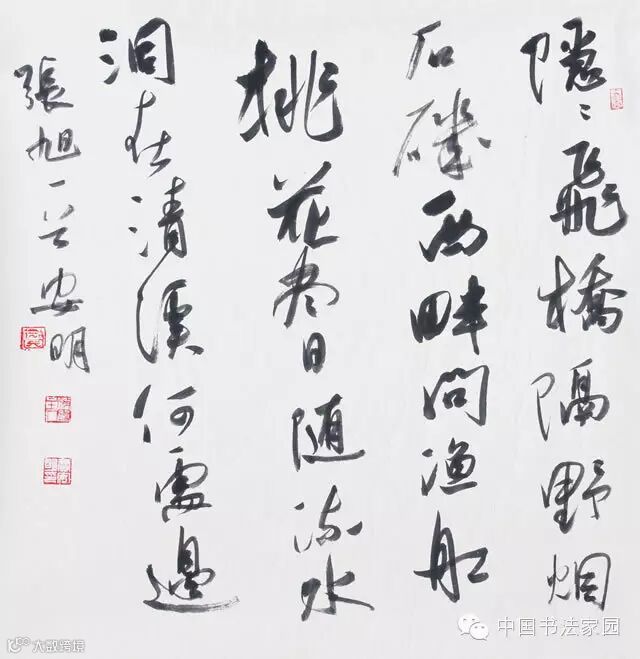 隱〻飛橋隔野烟
石磯西畔問漁船
桃花尽日随流水
洞在清溪何處邊
張旭一首 安明
中国书法家园
大数跨境